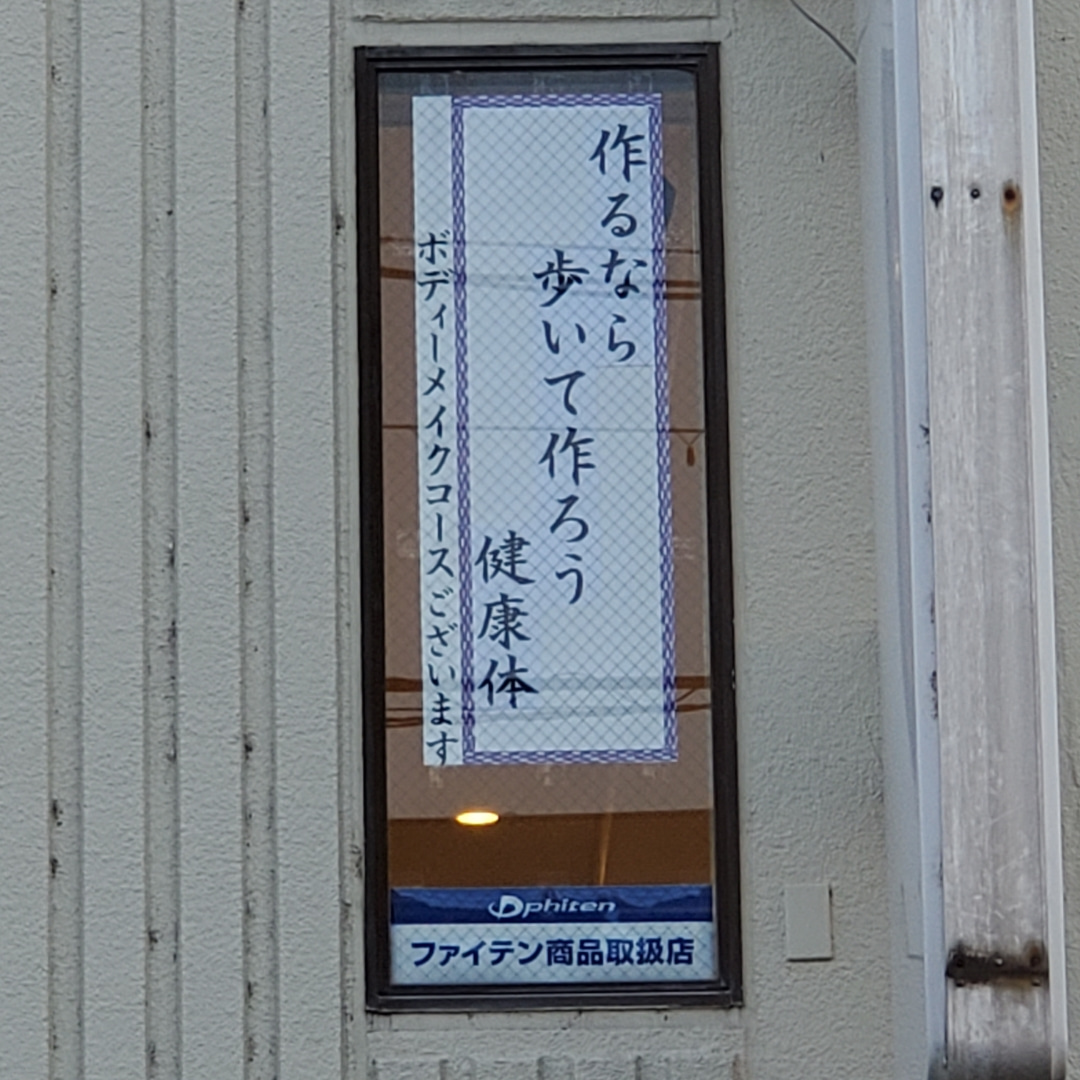 作るなら
歩いて作ろう
健康体
ボディーメイクコースございます
phiten
ファイテン商品取扱店